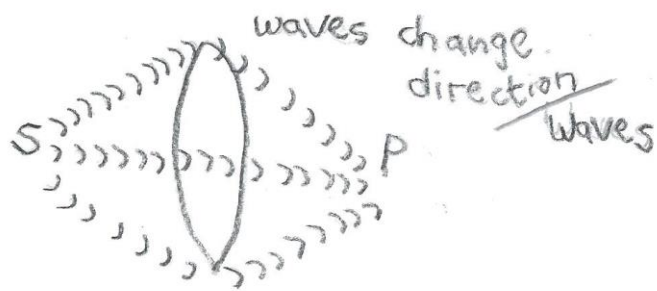 waves change
direction
Waves
S
P